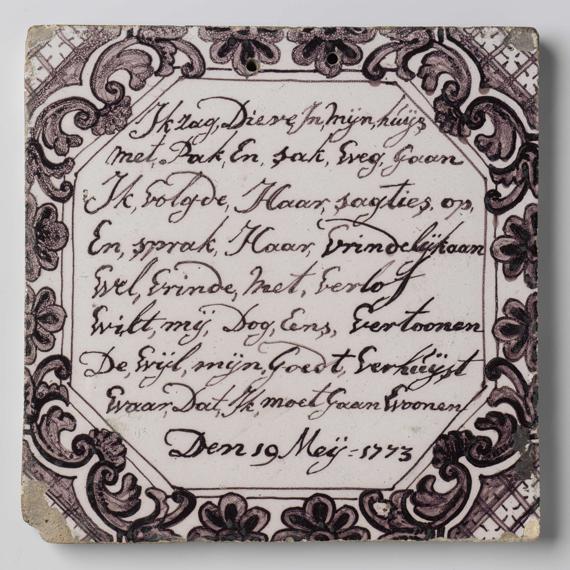 Ik zag, Dieve, In, Mijn, huijs
met, Pak, En, sak, Weg, Gaan
Ik, volgde, Haar, sagties, op,
En, sprak, Haar, Vrindelijkaan
Wel, Vrinde, Met, Verlof
Wilt, mij, Dog, Eens, Vertoonen
De, Wijl, mijn, Goedt, Verhuijst
Waar, Dat, Ik, moet Gaan Woonen
Den 19 Meij = 1773